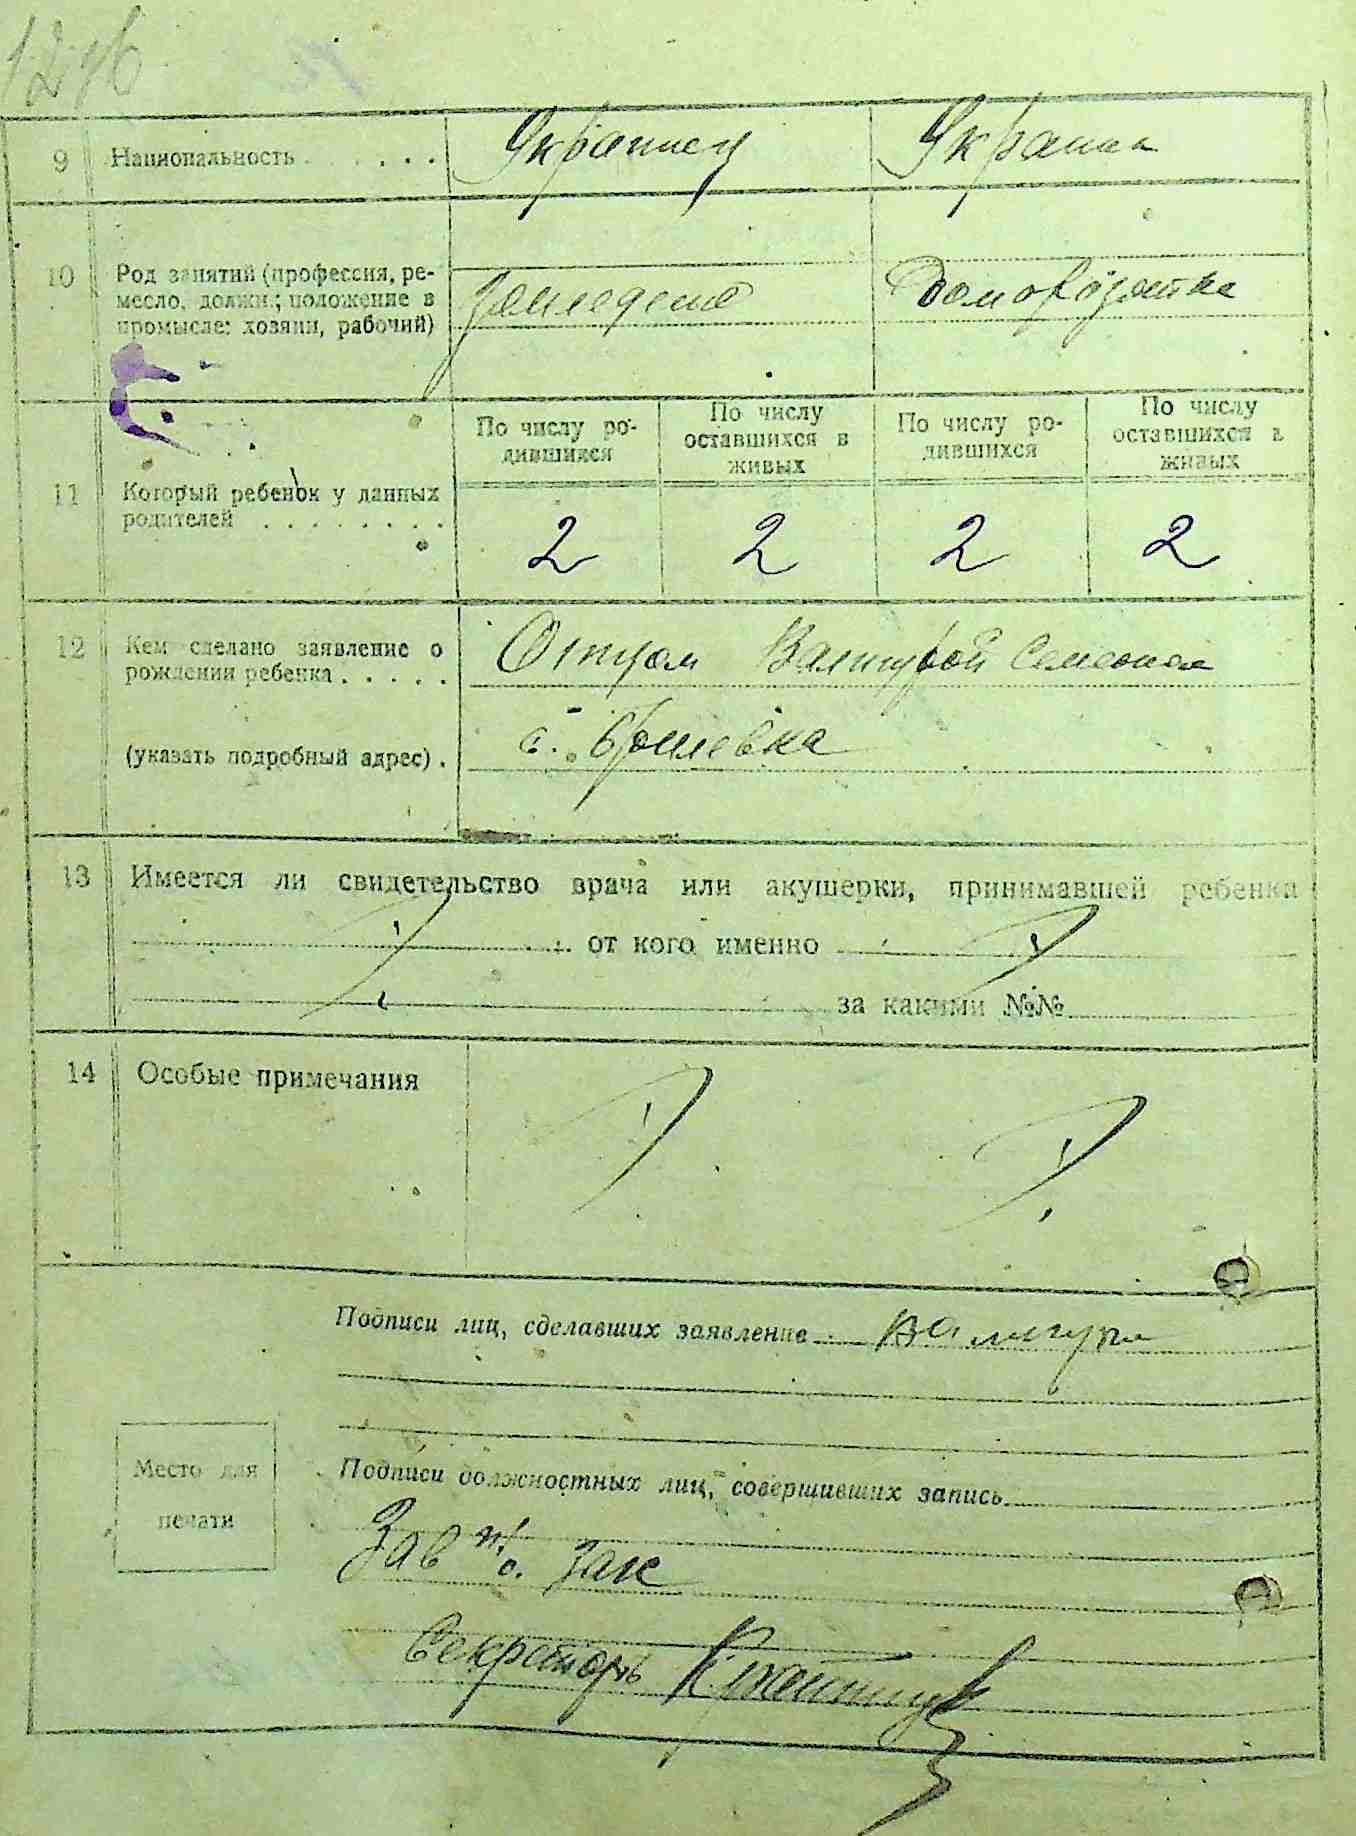 1246
9 Национальность . . . . . . Украинец Украин
10 Род занятий (профессия, ре-
месло, должн.; положение в
промысле: хозяин, рабочий)
земледелие Домохозяйка
По числу ро-
дившихся
По числу
оставшихся в
живых
По числу ро-
дившихся
По числу
оставшихся в
живых
11 Который ребенок у данных
родителей . . . . . . . .
2 2 2 2
12 Кем сделано заявление о
рождении ребенка . . . . .
Отцом Валигурой Семеном
(указать подробный адрес) .
с.
13 Имеется ли свидетельство врача или акушерки, принимавшей ребенка
от кого именно
за какими №№
14 Особые примечания
Подписи лиц, сделавших заявление Валигура
Место для
печати
Подписи должностных лиц, совершивших запись
Зав
Секретарь